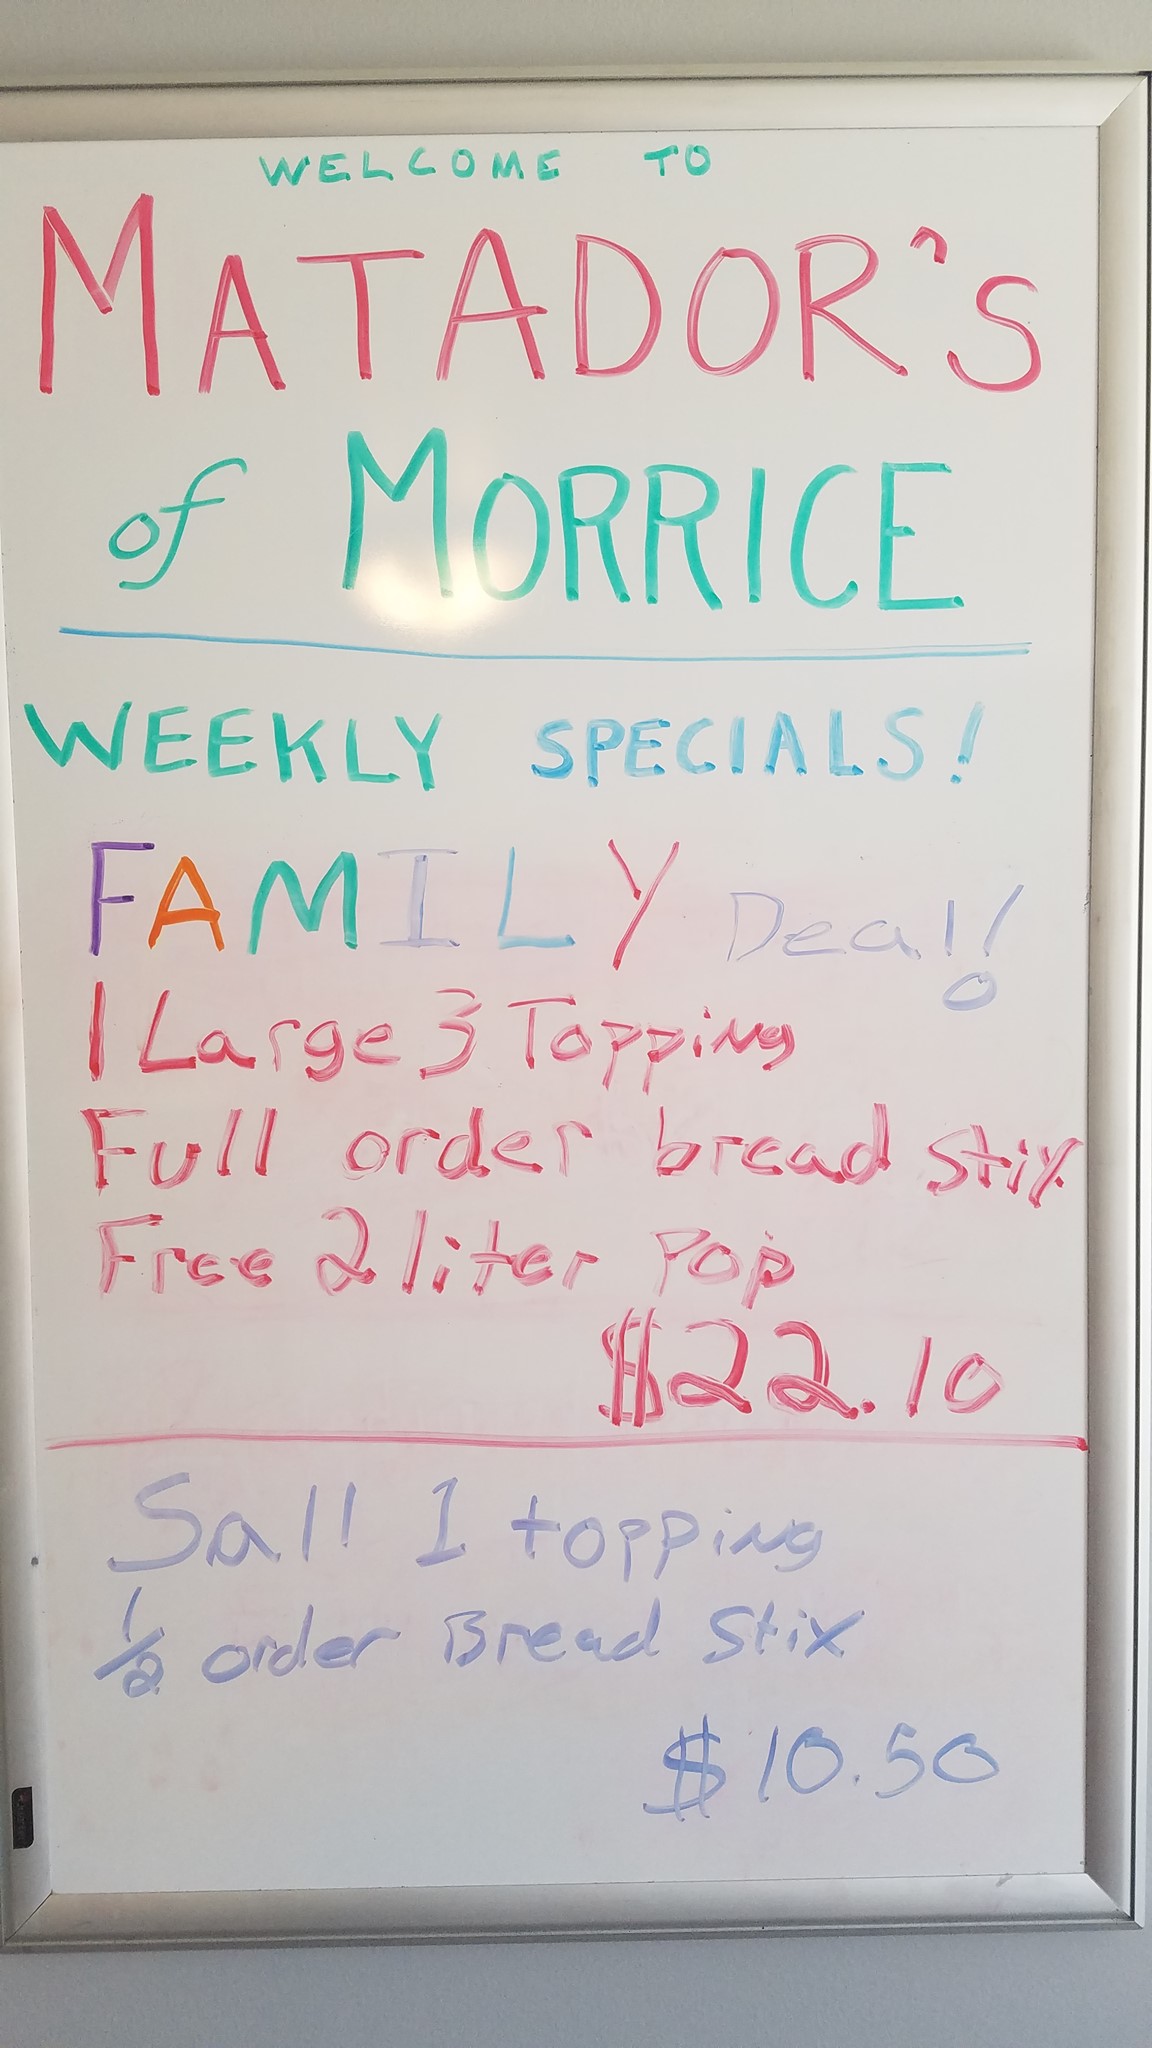 WELCOME TO
MATADOR's
of MORRICE
WEEKLY SPECIALS!
FAMILY Deal!
1 Large 3 Topping
Full order bread stix
Free 2 liter Pop
$22.10
Sall 1 topping
1/2 order Bread Stix
$10.50